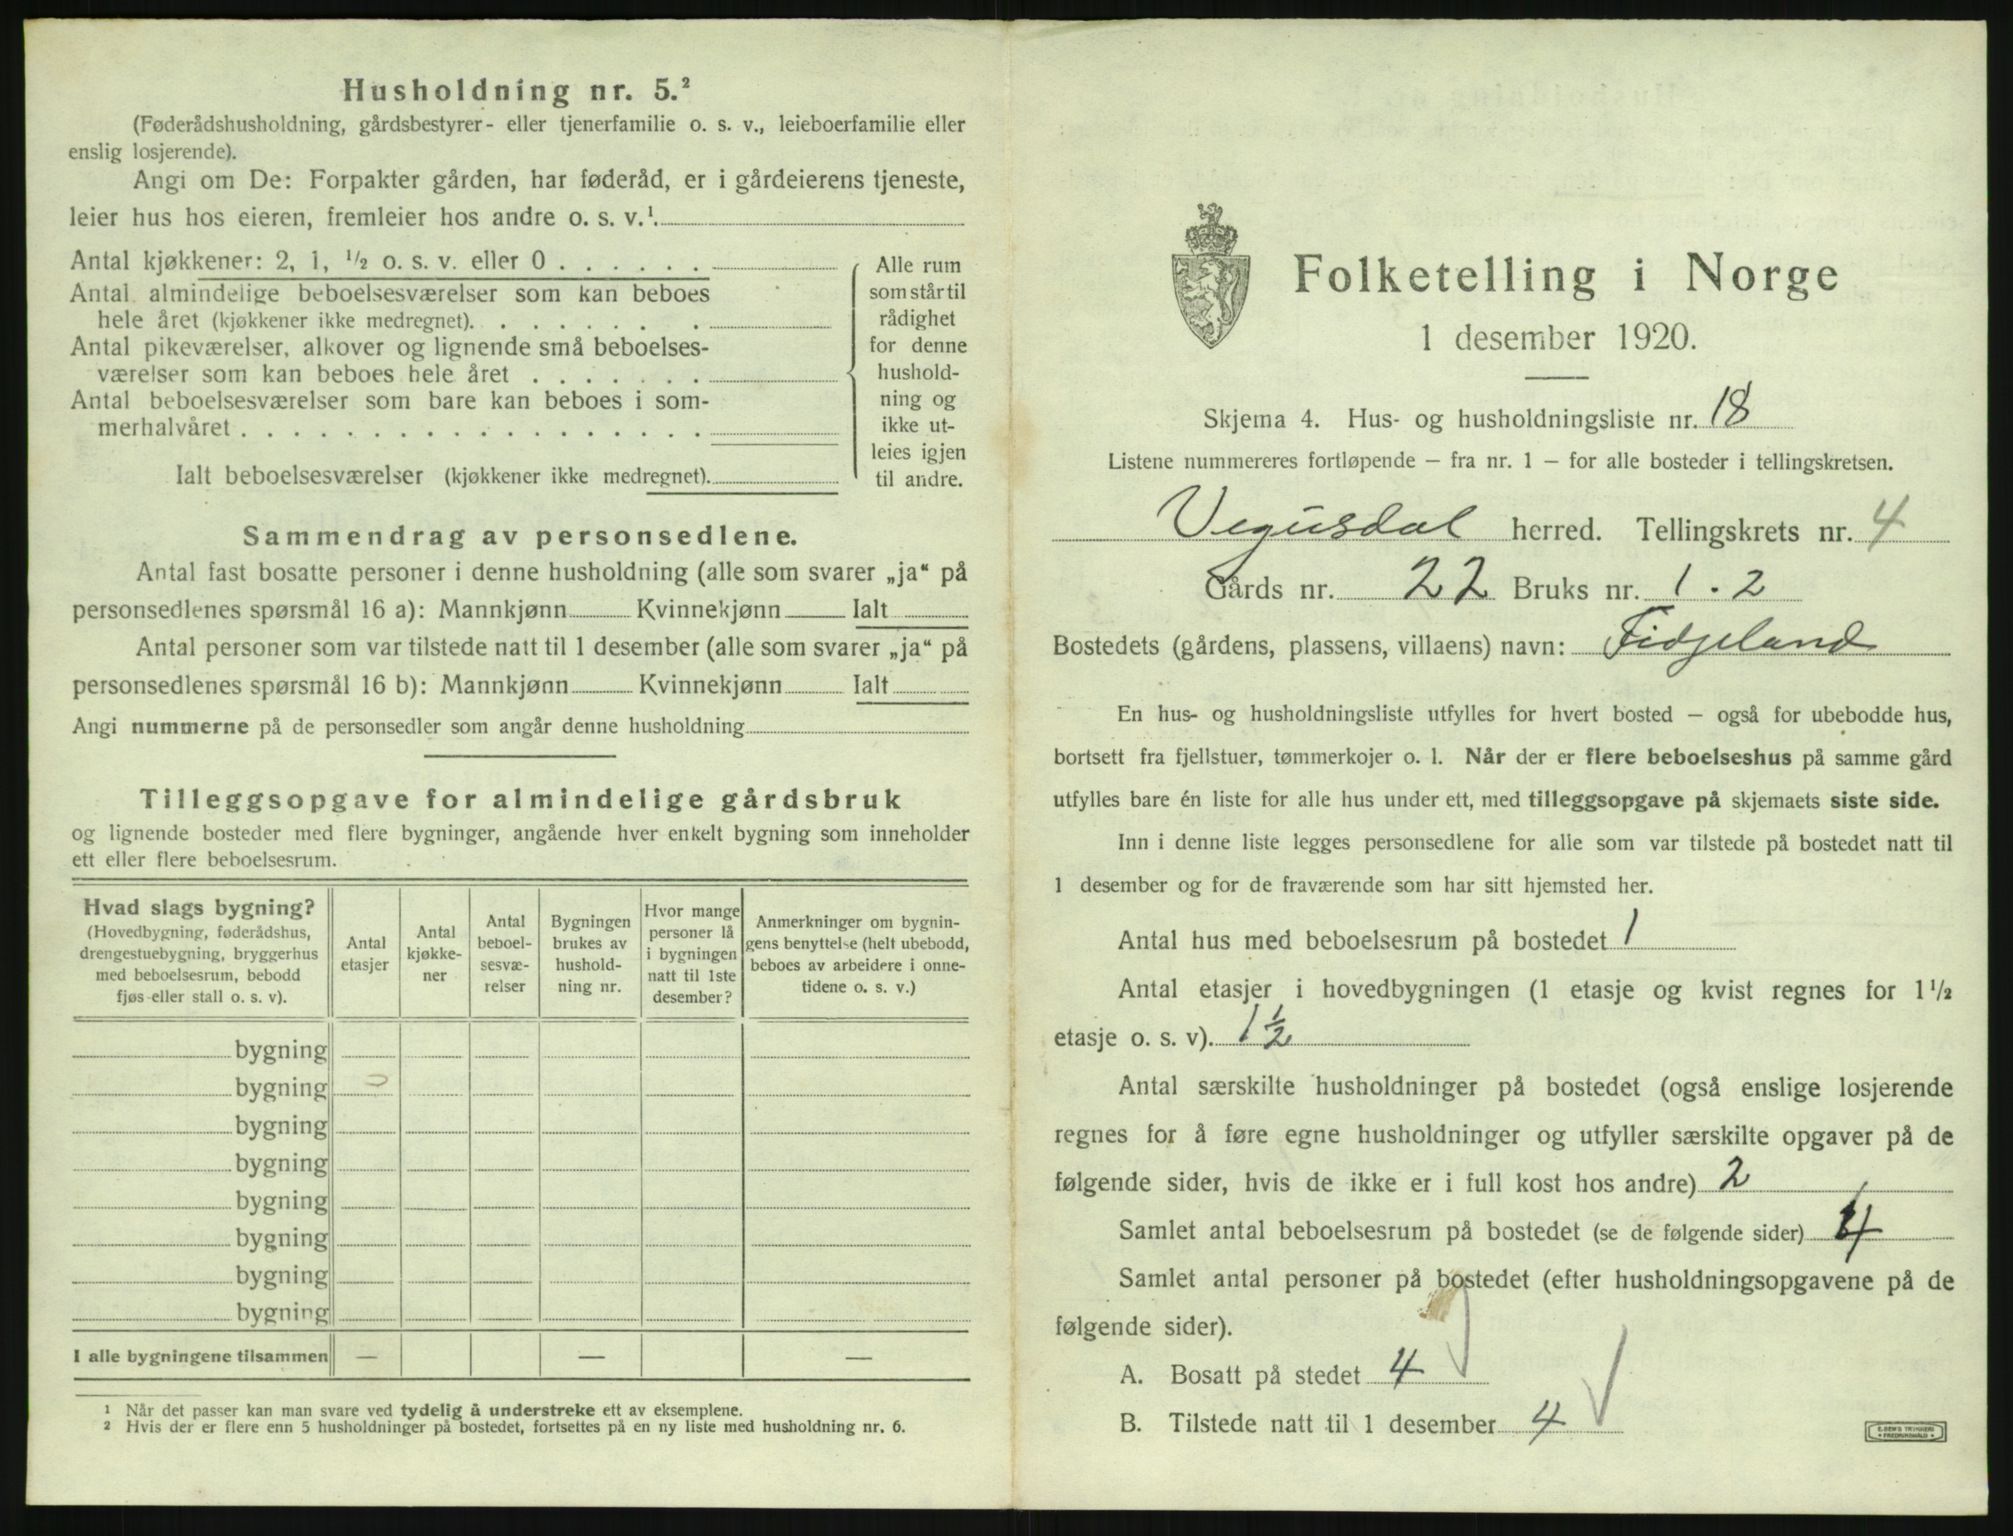 Husholdning nr. 5.²
(Føderådshusholdning, gårdsbestyrer- eller tjenerfamilie o. s. v., leieboerfamilie eller
enslig losjerende).
Angi om De: Forpakter gården, har føderåd, er i gårdeierens tjeneste,
leier hus hos eieren, fremleier hos andre o. s. v.¹.
Antal kjøkkener: 2, 1, ½ o. s. v. eller 0 . . . . . .
Antal almindelige beboelsesværelser som kan beboes
hele året (kjøkkener ikke medregnet). . . . . . . .
Antal pikeværelser, alkover og lignende små beboelses-
værelser som kan beboes hele året . . . . . . .
Antal beboelsesværelser som bare kan beboes i som-
merhalvåret . . . . . . . . . . . . . . . . . .
Ialt beboelsesværelser (kjøkkener ikke medregnet).
Alle rum
som står til
rådighet
for denne
hushold-
ning og
ikke ut-
leies igjen
til andre.
Sammendrag av personsedlene.
Antal fast bosatte personer i denne husholdning (alle som svarer „ja“ på
personsedlenes spørsmål 16 a): Mannkjønn Kvinnekjønn Ialt
Antal personer som var tilstede natt til 1 desember (alle som svarer „ja“ på
personsedlenes spørsmål 16 b): Mannkjønn Kvinnekjønn Ialt
Angi nummerne på de personsedler som angår denne husholdning
Tilleggsopgave for almindelige gårdsbruk
og lignende bosteder med flere bygninger, angående hver enkelt bygning som inneholder
ett eller flere beboelsesrum.
Hvad slags bygning?
(Hovedbygning, føderådshus,
drengestuebygning, bryggerhus
med beboelsesrum, bebodd
fjøs eller stall o. s. v).
Antal
etasjer
Antal
kjøkke-
ner
Antal
beboel-
sesvæ-
relser
Bygningen
brukes av
hushold-
ning nr.
Hvor mange
personer lå
i bygningen
natt til 1ste
desember?
Anmerkninger om bygnin-
gens benyttelse (helt ubebodd,
beboes av arbeidere i onne-
tidene o. s. v.)
bygning
bygning
bygning
bygning
bygning
bygning
bygning
bygning
I alle bygningene tilsammen — — —
¹ Når det passer kan man svare ved tydelig å understreke ett av eksemplene.
² Hvis der er flere enn 5 husholdninger på bostedet, fortsettes på en ny liste med husholdning nr. 6.
Folketelling i Norge
1 desember 1920.
Skjema 4. Hus- og husholdningsliste nr. 18
Listene nummereres fortløpende – fra nr. 1 – for alle bosteder i tellingskretsen.
Vegusdal herred. Tellingskrets nr. 4
Gårds nr. 22 Bruks nr. 1 . 2
Bostedets (gårdens, plassens, villaens) navn: Fidjeland
En hus- og husholdningsliste utfylles for hvert bosted – også for ubebodde hus,
bortsett fra fjellstuer, tømmerkojer o. l. Når der er flere beboelseshus på samme gård
utfylles bare én liste for alle hus under ett, med tilleggsopgave på skjemaets siste side.
Inn i denne liste legges personsedlene for alle som var tilstede på bostedet natt til
1 desember og for de fraværende som har sitt hjemsted her.
Antal hus med beboelsesrum på bostedet 1
Antal etasjer i hovedbygningen (1 etasje og kvist regnes for 1½
etasje o. s. v). 1½
Antal særskilte husholdninger på bostedet (også enslige losjerende
regnes for å føre egne husholdninger og utfyller særskilte opgaver på de
følgende sider, hvis de ikke er i full kost hos andre) 2
Samlet antal beboelsesrum på bostedet (se de følgende sider) 4
Samlet antal personer på bostedet (efter husholdningsopgavene på de
følgende sider).
A. Bosatt på stedet 4
B. Tilstede natt til 1 desember 4